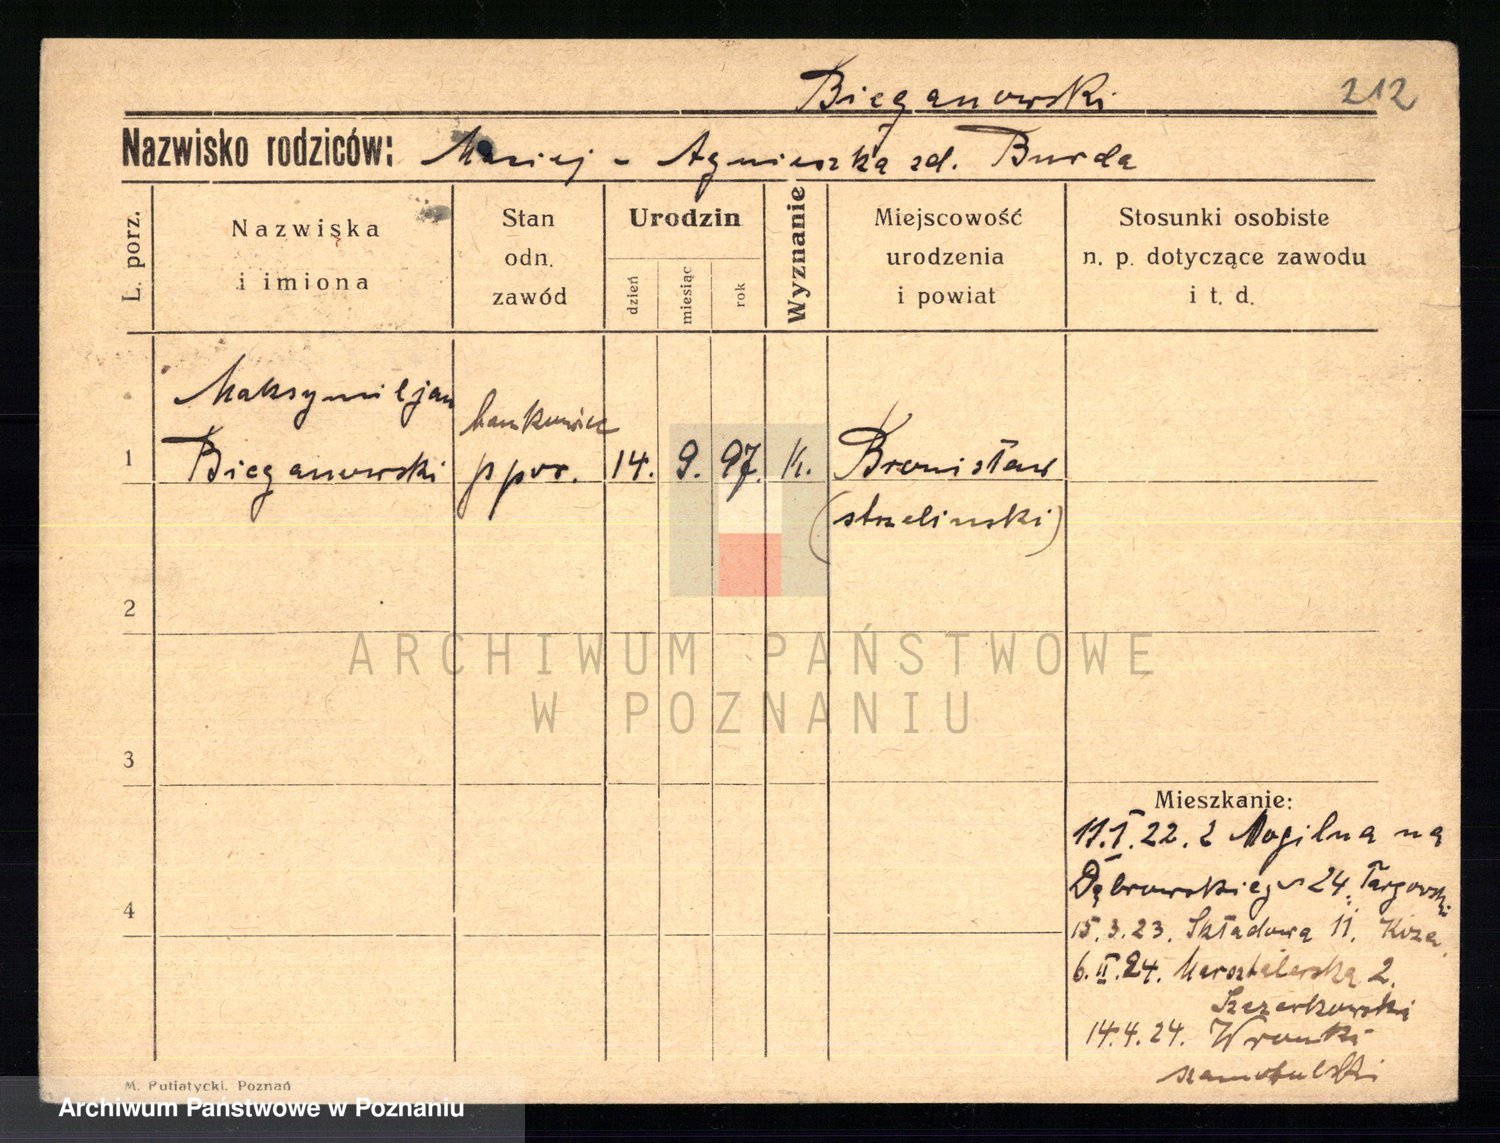 Bieganowski 212
Nazwisko rodziców: Maciej - Agnieszka zd. Burda
L. porz.
Nazwiska
i imiona
Stan
odn.
zawód
Urodzin
dzień
miesiąc
rok
Wyznanie
Miejscowość
urodzenia
i powiat
Stosunki osobiste
n. p. dotyczące zawodu
i t. d.
1
Maksymiljan
Bieganowski
bankowiec
ppor.
14. 9. 97. k.
Bronisław
(strzeliński)
2
3
4
Mieszkanie:
11.I.22. z Mogilna na
Dąbrowskiego 24. Targowski
15.3.23. Składowa 11. Koza
6.II.24. Marsztalarska 2.
Szczerkowski
14.4.24. Wronki
szamotulski
ARCHIWUM PAŃSTWOWE
W POZNANIU
M. Putiatycki. Poznań
Archiwum Państwowe w Poznaniu